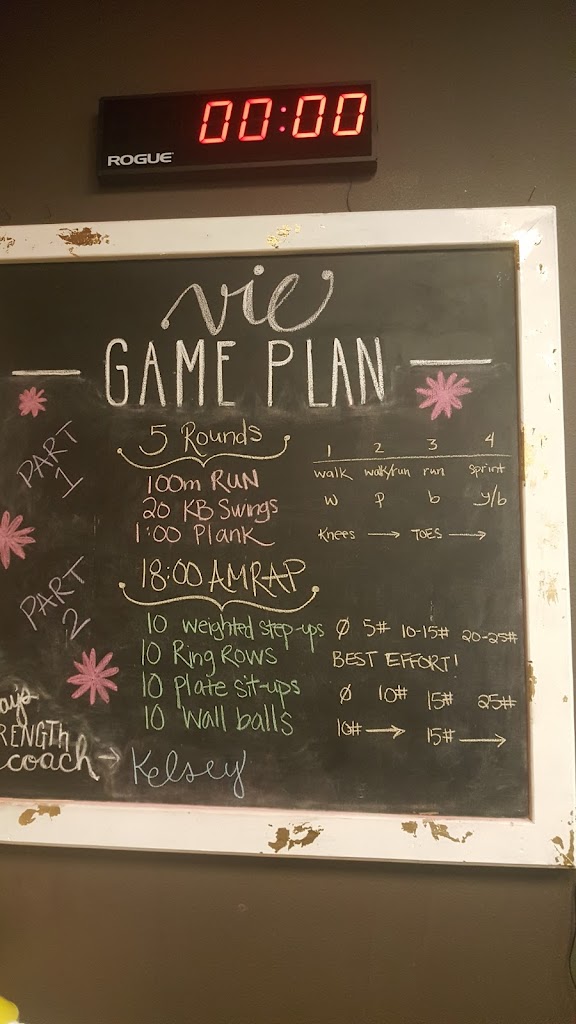 00:00
ROGUE
vie
GAME PLAN
PART 1
5 Rounds
1 2 3 4
walk walk/run run sprint
100m RUN
w p b y/b
20 KB Swings
1:00 Plank
Knees → TOES →
PART 2
18:00 AMRAP
10 weighted step-ups Ø 5# 10-15# 20-25#
10 Ring Rows BEST EFFORT!
10 Plate sit-ups Ø 10# 15# 25#
10 Wall balls 10# → 15# →
ays
RENGTH
coach → Kelsey